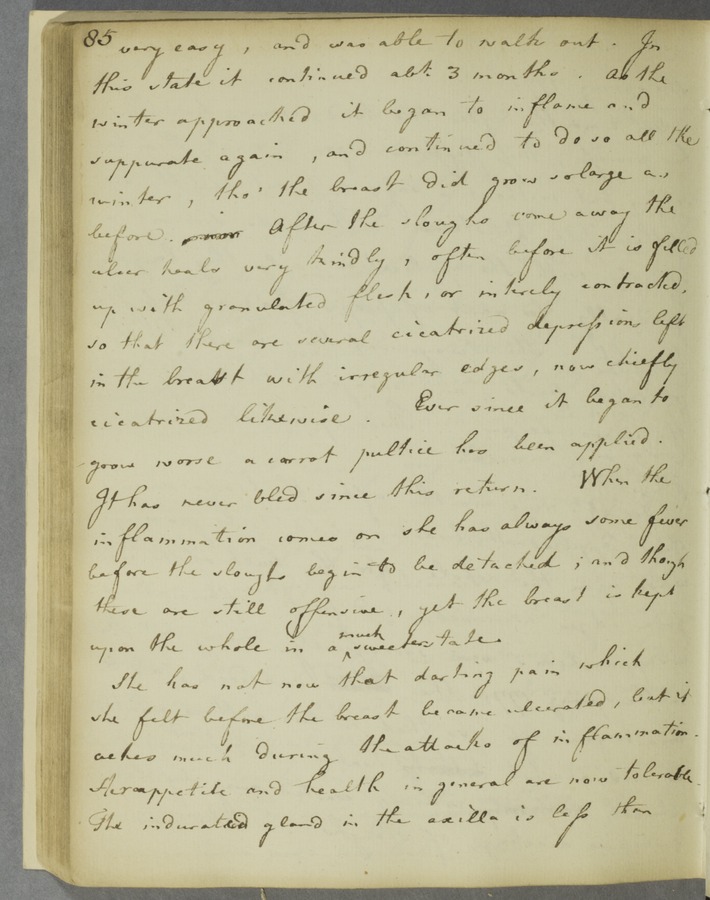 85
very easy, and was able to walk out. In
this state it continued abt. 3 months. As the
winter approached it began to inflame and
suppurate again, and continued to do so all the
winter, tho' the breast did grow so large as
before. After the sloughs come away the
ulcer heals very kindly, often before it is filled
up with granulated flesh, or intirely contracted,
so that there are several cicatrized depressions left
in the breast with irregular edges, now chiefly
cicatrized likewise. Ever since it began to
grow worse a carrot pultice has been applied.
It has never bled since this return. When the
inflammation comes on she has always some fever
before the sloughs begin to be detached; and though
these are still offensive, yet the breast is kept
upon the whole in a much sweeter state.
She has not now that darting pain which
she felt before the breast became ulcerated, but it
aches much during the attacks of inflammation.
Her appetite and health in general are now tolerable.
The indurated gland in the axilla is less than